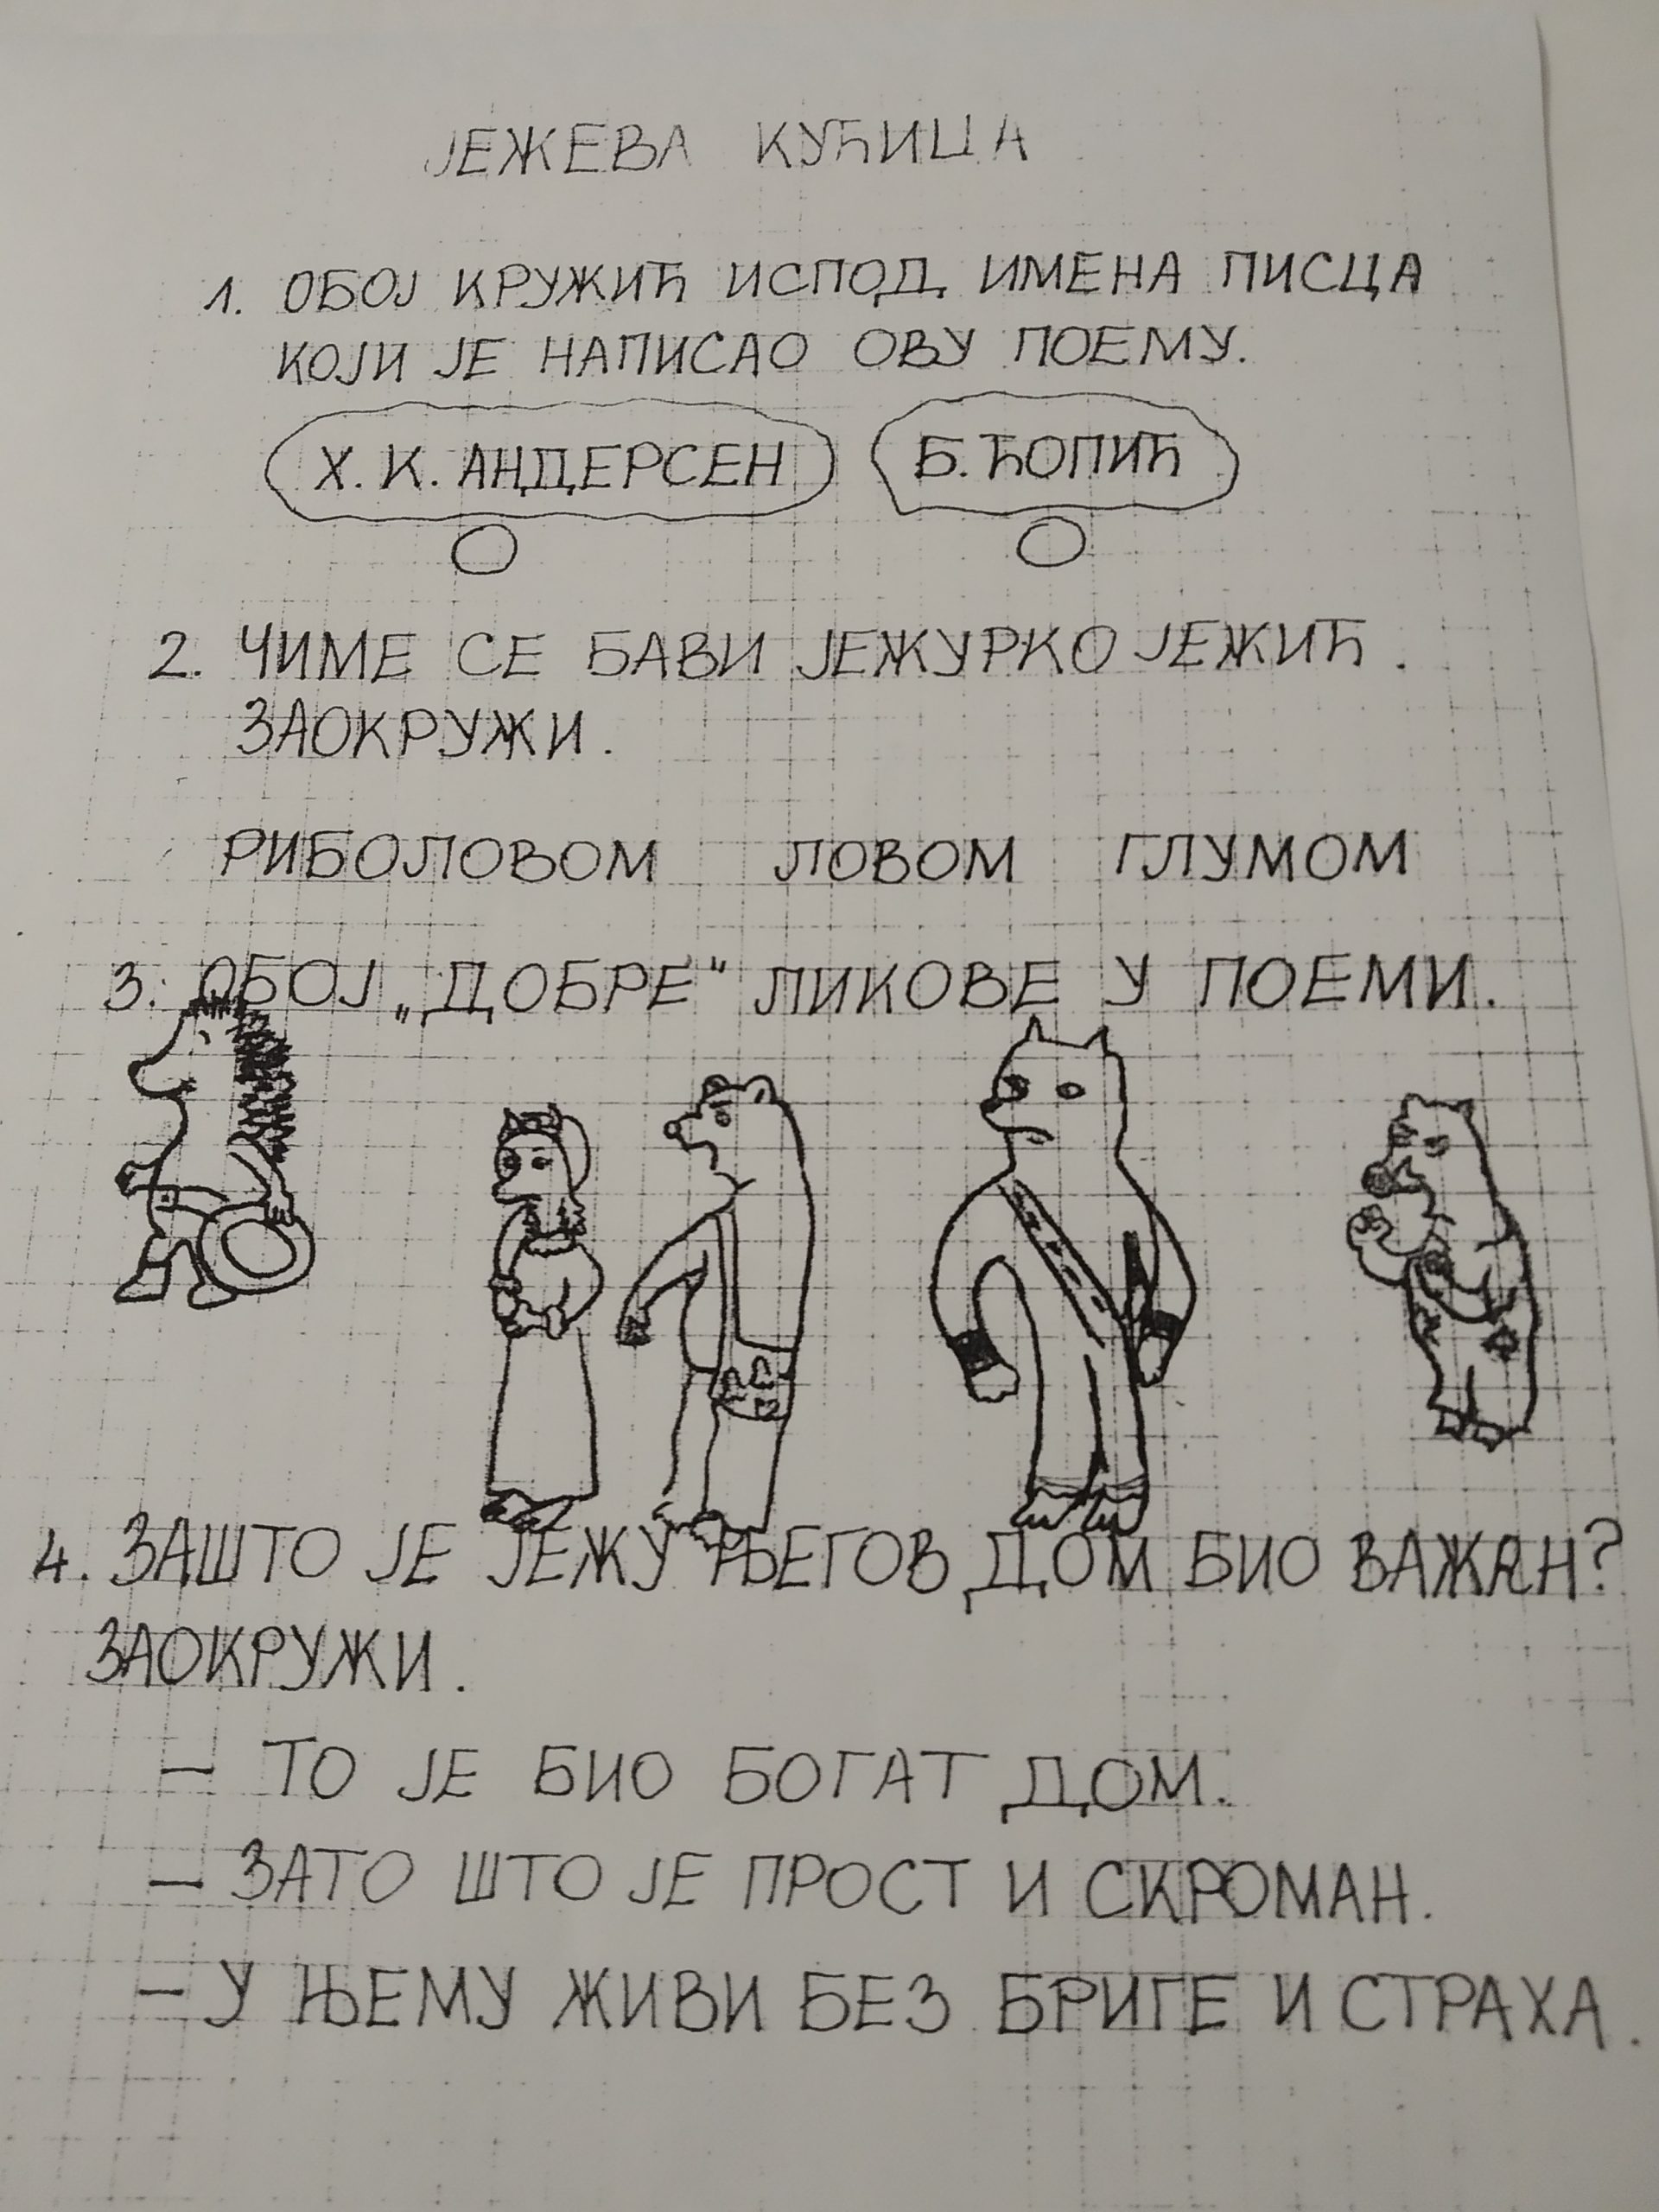 ЈЕЖЕВА КУЋИЦА
1. ОБОЈ КРУЖИЋ ИСПОД ИМЕНА ПИСЦА
КОЈИ ЈЕ НАПИСАО ОВУ ПОЕМУ.
Х. К. АНДЕРСЕН Б. ЋОПИЋ
2. ЧИМЕ СЕ БАВИ ЈЕЖУРКО ЈЕЖИЋ.
ЗАОКРУЖИ.
РИБОЛОВОМ ЛОВОМ ГЛУМОМ
3. ОБОЈ „ДОБРЕ" ЛИКОВЕ У ПОЕМИ.
4. ЗАШТО ЈЕ ЈЕЖУ ЊЕГОВ ДОМ БИО ВАЖАН?
ЗАОКРУЖИ.
– ТО ЈЕ БИО БОГАТ ДОМ.
– ЗАТО ШТО ЈЕ ПРОСТ И СКРОМАН.
– У ЊЕМУ ЖИВИ БЕЗ БРИГЕ И СТРАХА.